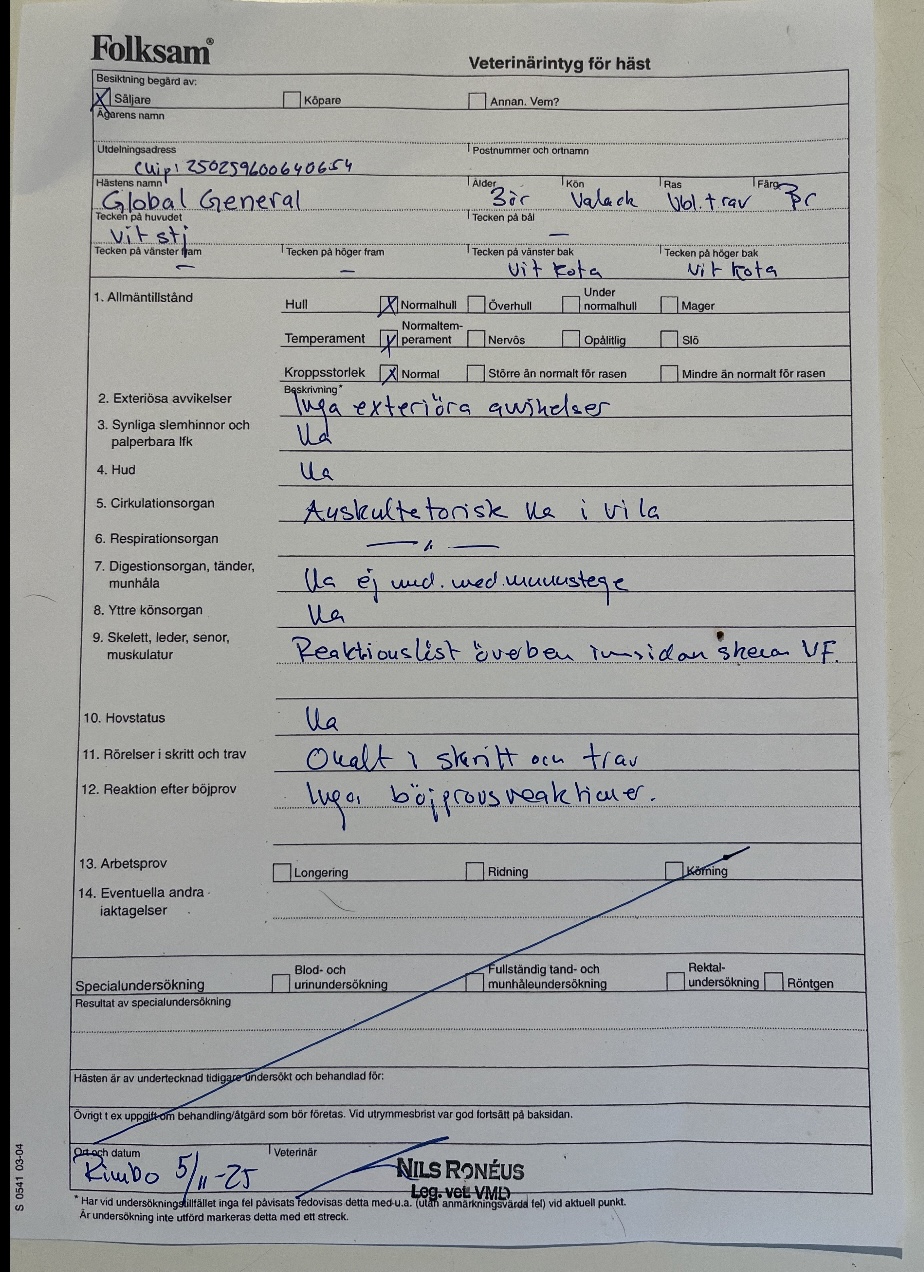 Folksam®
Veterinärintyg för häst
Besiktning begärd av:
X Säljare Köpare Annan. Vem?
Ägarens namn
Utdelningsadress Postnummer och ortnamn
Chip: 250259600640654
Hästens namn Ålder Kön Ras Färg
Global General 3år Valack Vbl. trav Br
Tecken på huvudet Tecken på bål
vit stj —
Tecken på vänster fram Tecken på höger fram Tecken på vänster bak Tecken på höger bak
— — Vit kota Vit kota
1. Allmäntillstånd
Hull X Normalhull Överhull Under normalhull Mager
Temperament X Normaltem-perament Nervös Opålitlig Slö
Kroppsstorlek X Normal Större än normalt för rasen Mindre än normalt för rasen
Beskrivning*
2. Exteriösa avvikelser Inga exteriöra avvikelser
3. Synliga slemhinnor och
palperbara lfk Ua
4. Hud Ua
5. Cirkulationsorgan Auskultetorisk Ua i vila
6. Respirationsorgan — " —
7. Digestionsorgan, tänder,
munhåla Ua ej und. med munstege
8. Yttre könsorgan Ua
9. Skelett, leder, senor,
muskulatur Reaktionslöst överben insidan skena VF.
10. Hovstatus Ua
11. Rörelser i skritt och trav Ohalt i skritt och trav
12. Reaktion efter böjprov Inga böjprovsreaktioner.
13. Arbetsprov Longering Ridning Körning
14. Eventuella andra
iaktagelser
Specialundersökning Blod- och urinundersökning Fullständig tand- och munhåleundersökning Rektal-undersökning Röntgen
Resultat av specialundersökning
Hästen är av undertecknad tidigare undersökt och behandlad för:
Övrigt t ex uppgift om behandling/åtgärd som bör företas. Vid utrymmesbrist var god fortsätt på baksidan.
Ort och datum Veterinär
Rimbo 5/11-25 NILS RONÉUS
Leg. vet. VMD
* Har vid undersökningstillfället inga fel påvisats redovisas detta med u.a. (utan anmärkningsvärda fel) vid aktuell punkt.
Är undersökning inte utförd markeras detta med ett streck.
S 0541 03-04